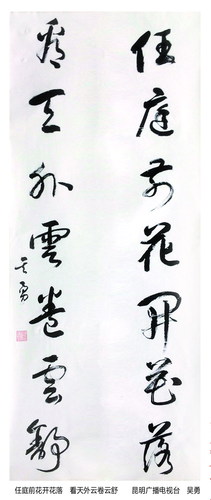 任庭前花開花落
看天外雲卷雲舒
吴勇
任庭前花开花落 看天外云卷云舒 昆明广播电视台 吴勇